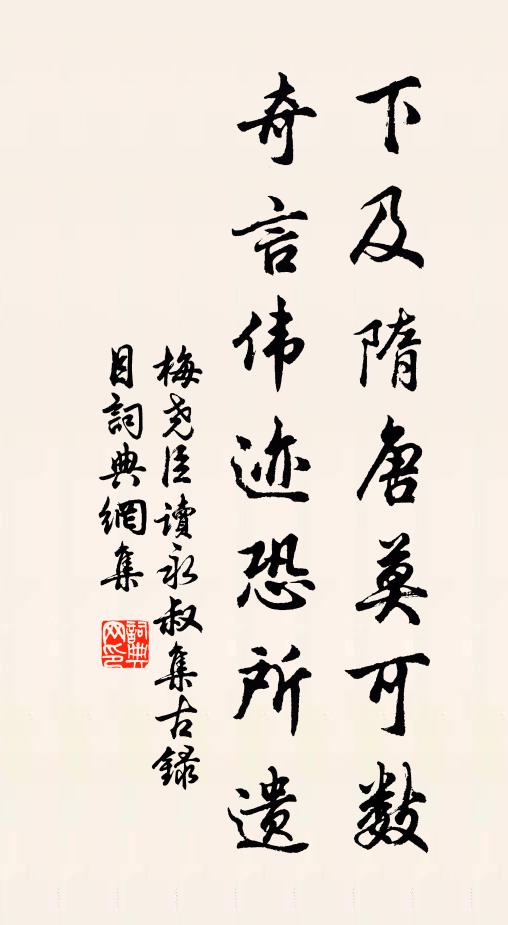 下及隋唐莫可数
奇言伟迹恐所遗
梅尧臣读永叔集古録
目詞典網集
詞典
网印